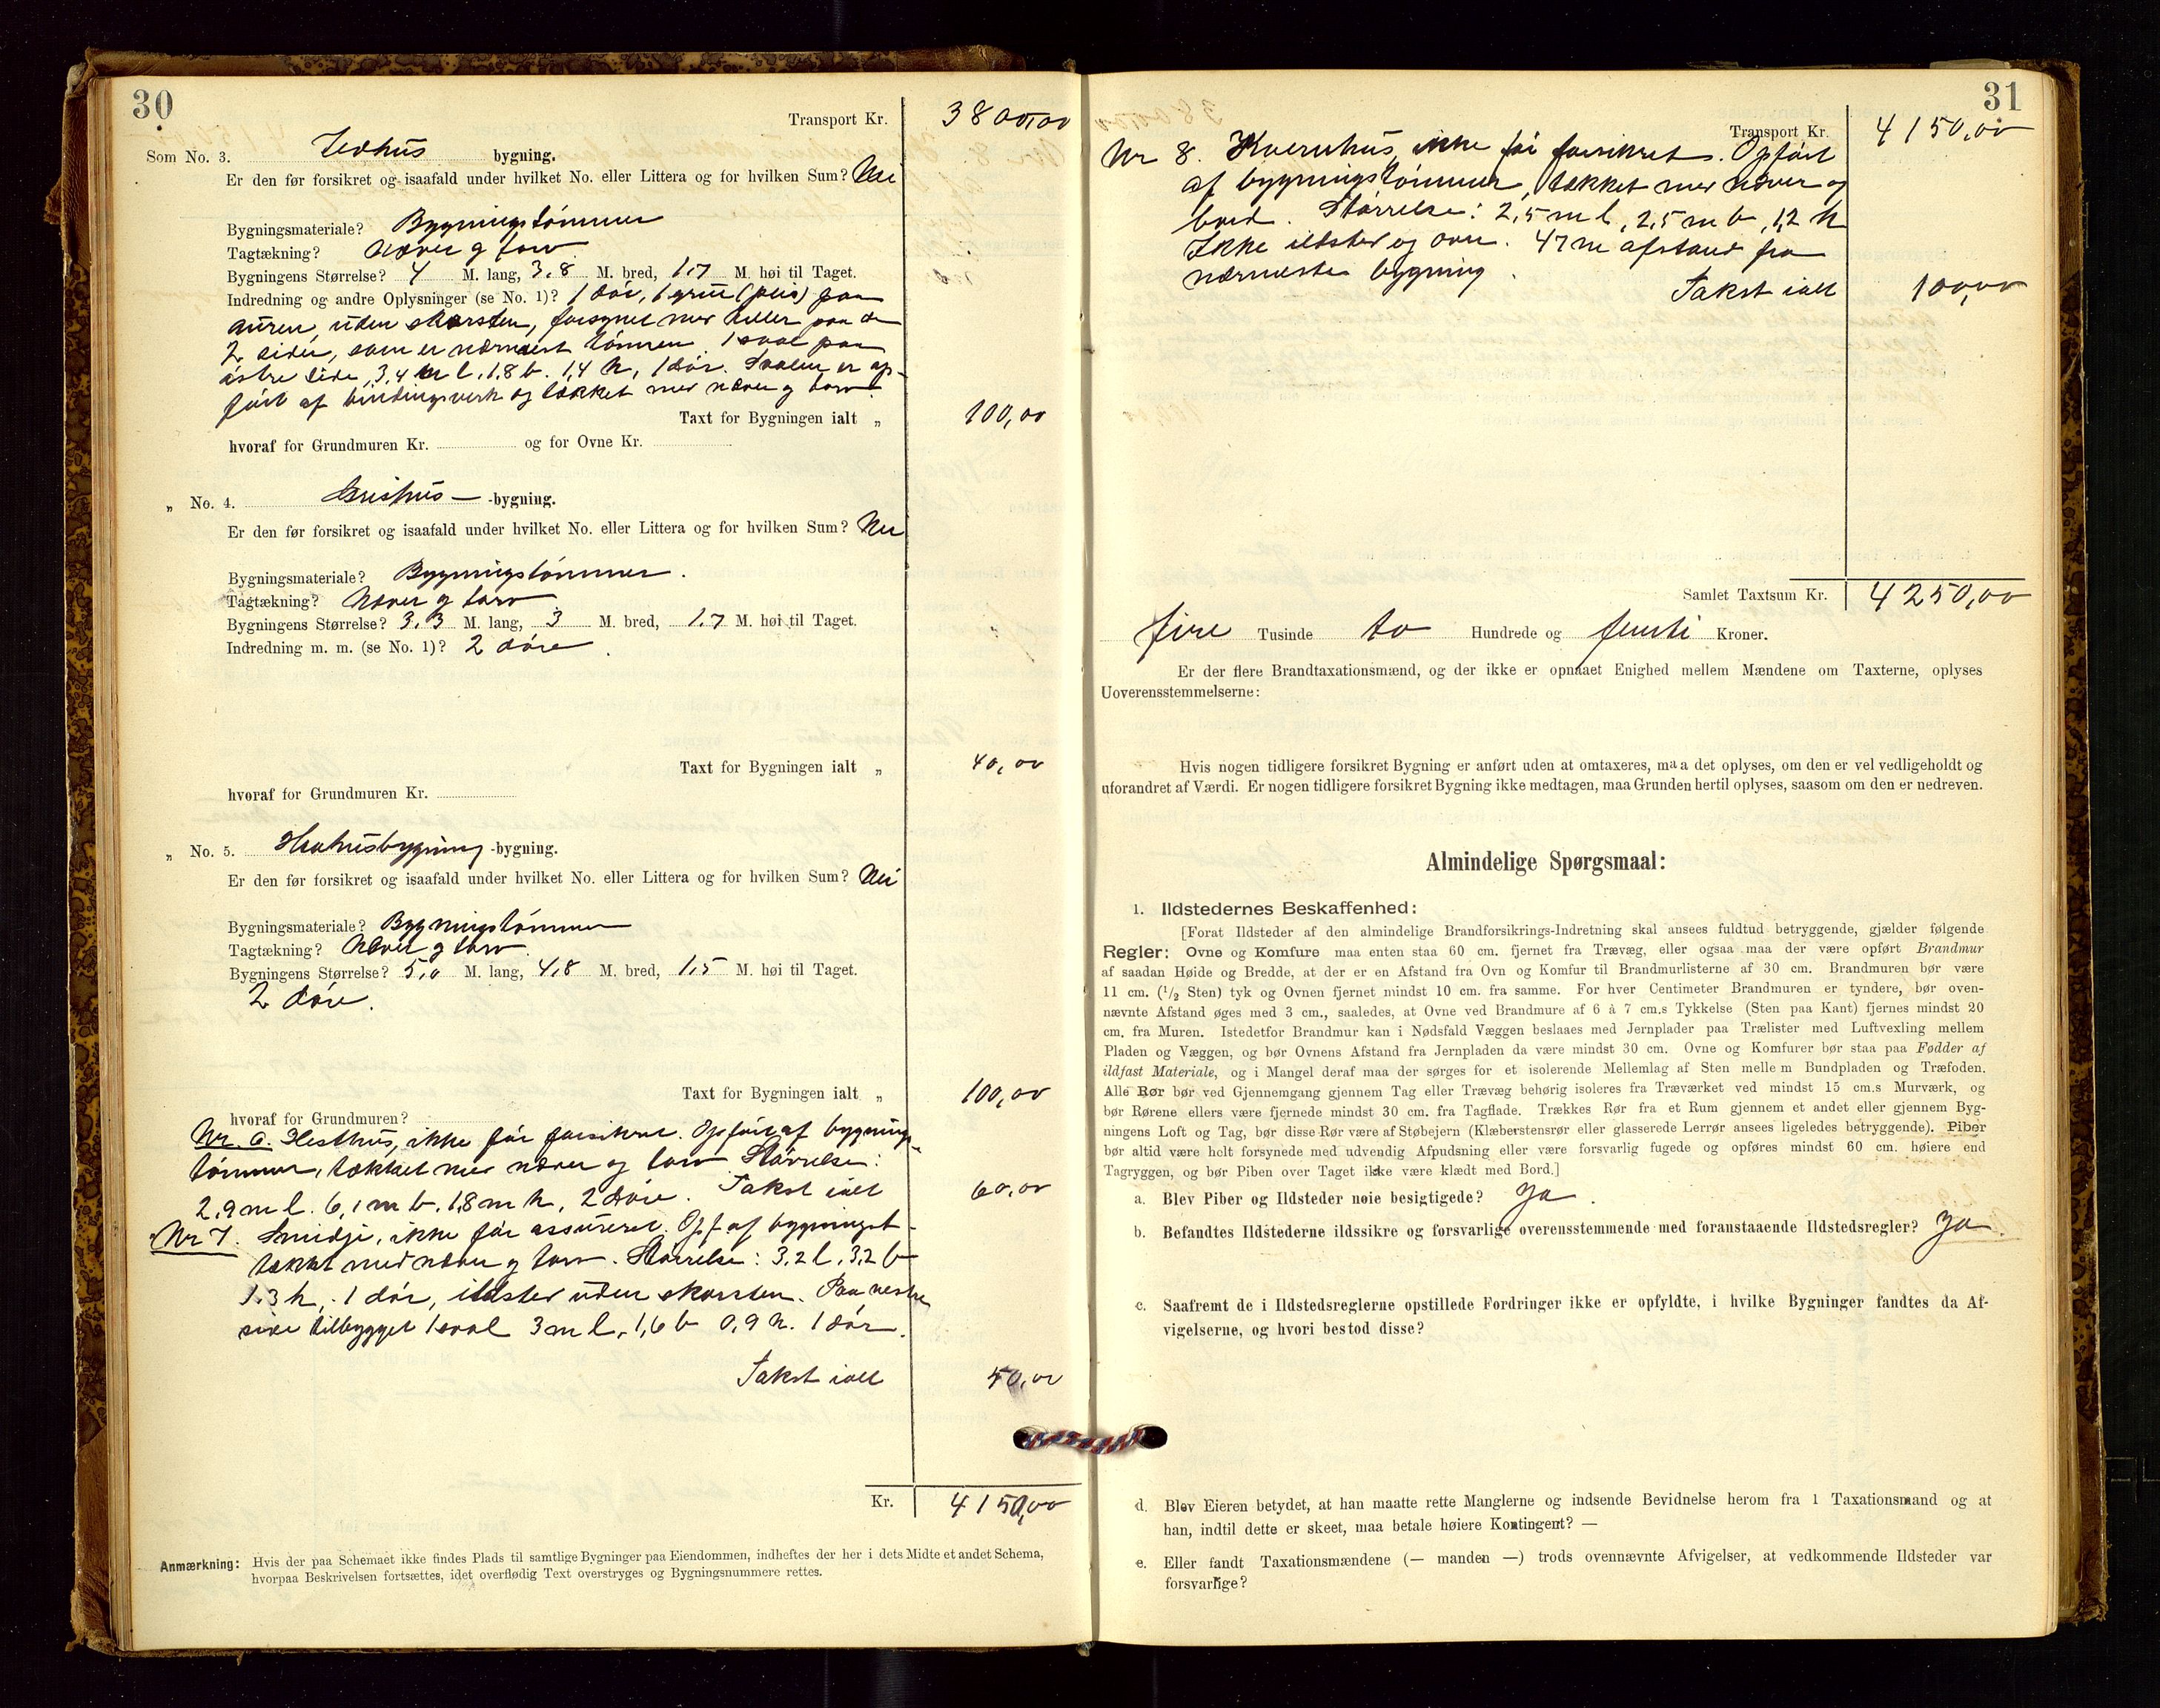 30
Transport Kr. 3800,00
Som No. 3. Ildhus bygning.
Er den før forsikret og isaafald under hvilket No. eller Littera og for hvilken Sum? Nei
Bygningsmateriale? Bygningstømmer
Tagtækning? Næver og torv
Bygningens Størrelse? 4 M. lang, 3.8 M. bred, 1.7 M. høi til Taget.
Indredning og andre Oplysninger (se No. 1)? 1 dør, 1 grue (peis) paa
auren, uden skorsten, forsynet med heller paa de
2 sider, som er nærmest tømren. 1 sval paa
østre side, 3,4 m l. 1,8 b. 1,4 h, 1 dør. Svalen er op-
ført af bindingsverk og tækket med næver og torv.
Taxt for Bygningen ialt „ 100,00
hvoraf for Grundmuren Kr. og for Ovne Kr.
„ No. 4. Grishus — -bygning.
Er den før forsikret og isaafald under hvilket No. eller Littera og for hvilken Sum? Nei
Bygningsmateriale? Bygningstømmer.
Tagtækning? Næver og torv
Bygningens Størrelse? 3.3 M. lang, 3 M. bred, 1.7 M. høi til Taget.
Indredning m. m. (se No. 1)? 2 døre.
Taxt for Bygningen ialt „ 40,00
hvoraf for Grundmuren Kr.
„ No. 5. Høhusbygning -bygning.
Er den før forsikret og isaafald under hvilket No. eller Littera og for hvilken Sum? Nei
Bygningsmateriale? Bygningstømmer
Tagtækning? Næver og torv.
Bygningens Størrelse? 5,0 M. lang, 4,8 M. bred, 1,5 M. høi til Taget.
2 døre.
Taxt for Bygningen ialt „ 100,00
hvoraf for Grundmuren?
Nr. 6. Hesthus, ikke før forsikret. Opført af bygnings-
tømmer, tækket med næver og torv Størrelse:
2,9 m l. 6,1 m b. 1,8 m h, 2 døre. Takst ialt 60,00
Nr 7. Smidje, ikke før assureret. Opf. af bygningst-
tækket med næver og torv. Størrelse: 3,2 l, 3,2 b
1.3 h, 1 dør, ildsted uden skorsten. Paa vestre
side tilbygget 1 sval 3 m l, 1,6 b 0,9 h. 1 dør.
Takst ialt 50,00
Kr. 4150,00
Anmærkning: Hvis der paa Schemaet ikke findes Plads til samtlige Bygninger paa Eiendommen, indheftes der her i dets Midte et andet Schema,
hvorpaa Beskrivelsen fortsættes, idet overflødig Text overstryges og Bygningsnummere rettes.
31
Transport Kr. 4150,00
Nr 8. Kvernhus, ikke før forsikret. Opført
af bygningstømmer, tækket med næver og
bord. Størrelse: 2,5 m l, 2,5 m b, 1,2 h
Ikke ildsted og ovn. 47 m afstand fra
nærmeste bygning.
Takst ialt 100,00
Samlet Taxtsum Kr. 4250,00
fire Tusinde to Hundrede og femti Kroner.
Er der flere Brandtaxationsmænd, og der ikke er opnaaet Enighed mellem Mændene om Taxterne, oplyses
Uoverensstemmelserne:
Hvis nogen tidligere forsikret Bygning er anført uden at omtaxeres, maa det oplyses, om den er vel vedligeholdt og
uforandret af Værdi. Er nogen tidligere forsikret Bygning ikke medtagen, maa Grunden hertil oplyses, saasom om den er nedreven.
Almindelige Spørgsmaal:
1. Ildstedernes Beskaffenhed:
[Forat Ildsteder af den almindelige Brandforsikrings-Indretning skal ansees fuldtud betryggende, gjælder følgende
Regler: Ovne og Komfure maa enten staa 60 cm. fjernet fra Trævæg, eller ogsaa maa der være opført Brandmur
af saadan Høide og Bredde, at der er en Afstand fra Ovn og Komfur til Brandmurlisterne af 30 cm. Brandmuren bør være
11 cm. (1/2 Sten) tyk og Ovnen fjernet mindst 10 cm. fra samme. For hver Centimeter Brandmuren er tyndere, bør oven-
nævnte Afstand øges med 3 cm., saaledes, at Ovne ved Brandmure af 6 à 7 cm.s Tykkelse (Sten paa Kant) fjernes mindst 20
cm. fra Muren. Istedetfor Brandmur kan i Nødsfald Væggen beslaaes med Jernplader paa Trælister med Luftvexling mellem
Pladen og Væggen, og bør Ovnens Afstand fra Jernpladen da være mindst 30 cm. Ovne og Komfurer bør staa paa Fødder af
ildfast Materiale, og i Mangel deraf maa der sørges for et isolerende Mellemlag af Sten mellem Bundpladen og Træfoden.
Alle Rør bør ved Gjennemgang gjennem Tag eller Trævæg behørig isoleres fra Træværket ved mindst 15 cm.s Murværk, og
bør Rørene ellers være fjernede mindst 30 cm. fra Tagflade. Trækkes Rør fra et Rum gjennem et andet eller gjennem Byg-
ningens Loft og Tag, bør disse Rør være af Støbejern (Klæberstensrør eller glasserede Lerrør ansees ligeledes betryggende). Piber
bør altid være holt forsynede med udvendig Afpudsning eller være forsvarlig fugede og opføres mindst 60 cm. høiere end
Tagryggen, og bør Piben over Taget ikke være klædt med Bord.]
a. Blev Piber og Ildsteder nøie besigtigede? Ja.
b. Befandtes Ildstederne ildssikre og forsvarlige overensstemmende med foranstaaende Ildstedsregler? Ja.
c. Saafremt de i Ildstedsreglerne opstillede Fordringer ikke er opfyldte, i hvilke Bygninger fandtes da Af-
vigelserne, og hvori bestod disse?
d. Blev Eieren betydet, at han maatte rette Manglerne og indsende Bevidnelse herom fra 1 Taxationsmand og at
han, indtil dette er skeet, maa betale høiere Kontingent? —
e. Eller fandt Taxationsmændene (— manden —) trods ovennævnte Afvigelser, at vedkommende Ildsteder var
forsvarlige?